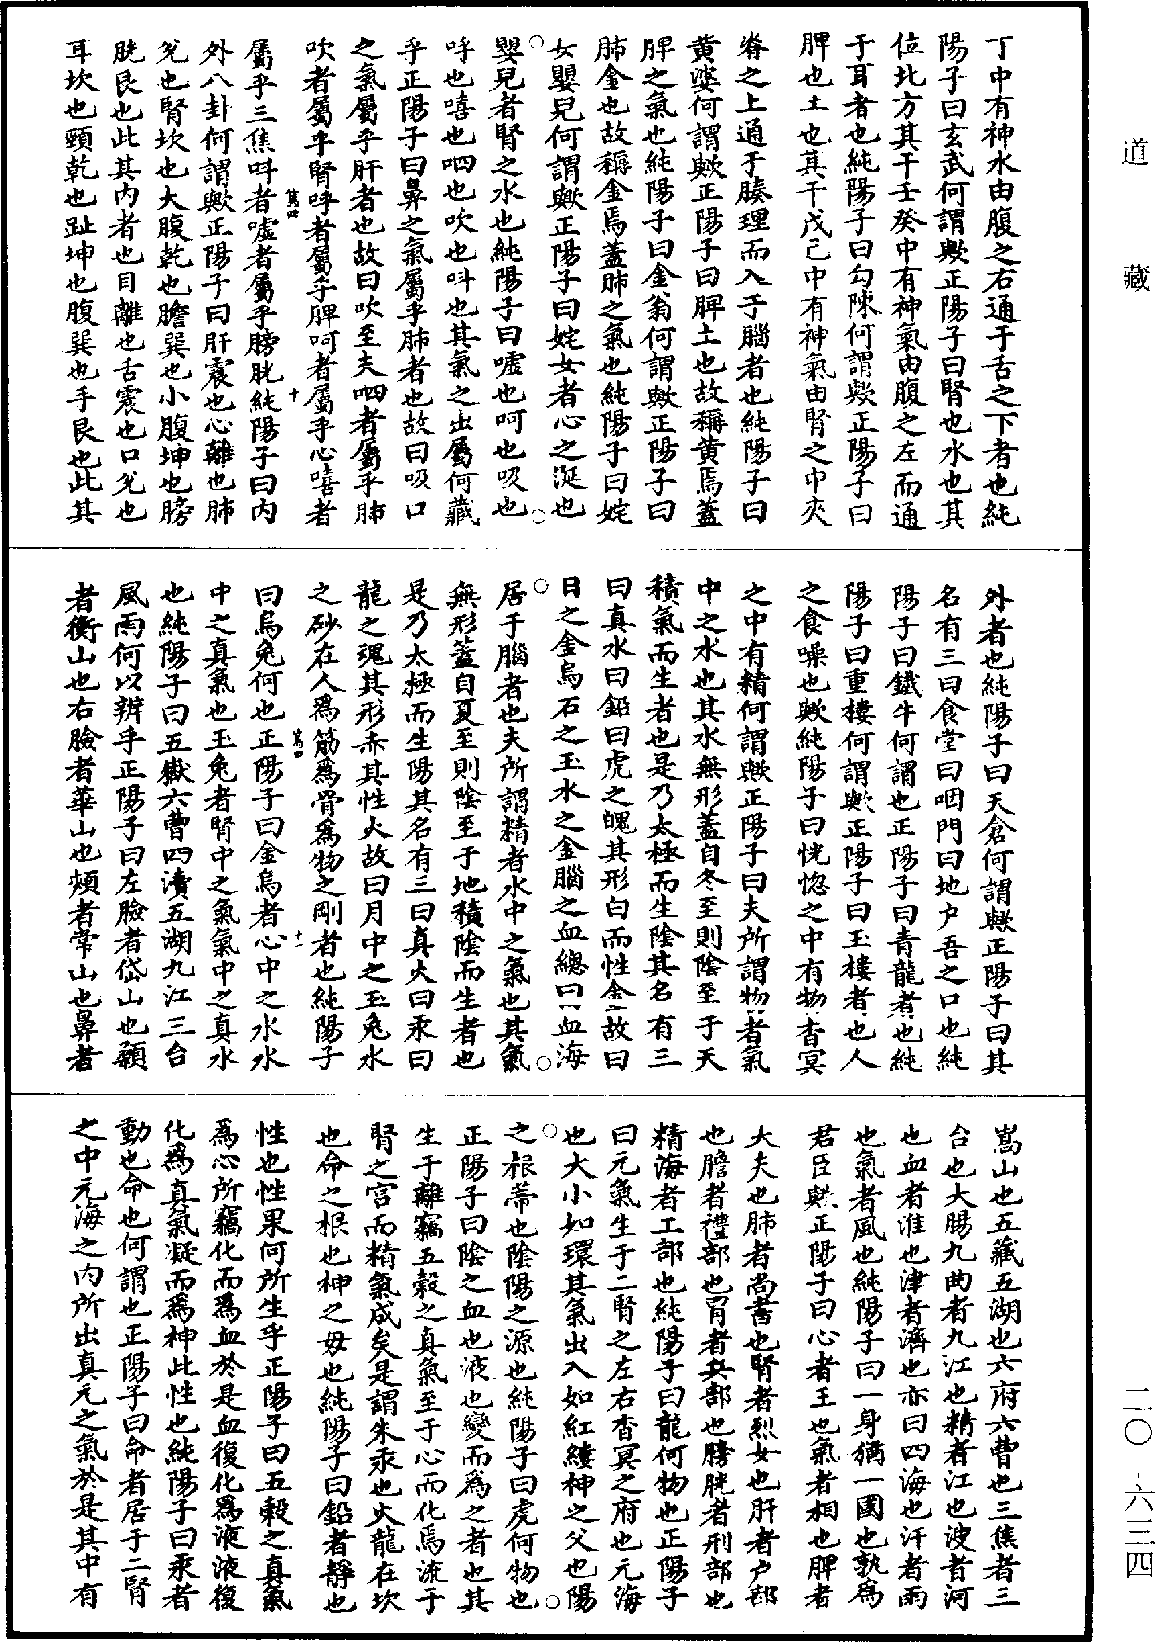 丁中有神水由腹之右通于舌之下者也純
陽子曰玄武何謂歟正陽子曰腎也水也其
位北方其干壬癸中有神氣由腹之左而通
于耳者也純陽子曰勾陳何謂歟正陽子曰
脾也土也其干戊己中有神氣由腎之中夾
脊之上通于腠理而入于腦者也純陽子曰
黄婆何謂歟正陽子曰脾土也故稱黄焉蓋
脾之氣也純陽子曰金翁何謂歟正陽子曰
肺金也故稱金焉蓋肺之氣也純陽子曰姹
女嬰兒何謂歟正陽子曰姹女者心之涎也
嬰兒者腎之水也純陽子曰噓也呵也吸也
呼也嘻也呬也吹也呌也其氣之出屬何藏
乎正陽子曰鼻之氣屬乎肺者也故曰吸口
之氣屬乎肝者也故曰吹至夫呬者屬乎肺
吹者屬乎腎呼者屬乎脾呵者屬乎心嘻者
屬乎三焦呌者噓者屬乎膀胱純陽子曰内
外八卦何謂歟正陽子曰肝震也心離也肺
兊也腎坎也大腹乾也膽巽也小腹坤也膀
胱艮也此其内者也目離也舌震也口兊也
耳坎也頸乾也趾坤也腹巽也手艮也此其
外者也純陽子曰天倉何謂歟正陽子曰其
名有三曰食堂曰咽門曰地户吾之口也純
陽子曰鐵牛何謂也正陽子曰青龍者也純
陽子曰重樓何謂歟正陽子曰玉樓者也人
之食嗓也歟純陽子曰恍惚之中有物杳冥
之中有精何謂歟正陽子曰夫所謂物者氣
中之水也其水無形蓋自冬至則陰至于天
積氣而生者也是乃太極而生陰其名有三
曰真水曰鉛曰虎之魄其形白而性金故曰
日之金烏石之玉水之金腦之血總曰血海
居于腦者也夫所謂精者水中之氣也其氣
無形蓋自夏至則陰至于地積陰而生者也
是乃太極而生陽其名有三曰真火曰汞曰
龍之魂其形赤其性火故曰月中之玉兔水
之砂在人爲筋爲骨爲物之剛者也純陽子
曰烏兔何也正陽子曰金烏者心中之水水
中之真氣也玉兔者腎中之氣氣中之真水
也純陽子曰五嶽六曹四瀆五湖九江三台
風雨何以辨乎正陽子曰左臉者岱山也額
者衡山也右臉者華山也頰者常山也鼻者
嵩山也五藏五湖也六府六曹也三焦者三
台也大腸九曲者九江也精者江也液者河
也血者淮也津者濟也亦曰四海也汗者雨
也氣者風也純陽子曰一身猶一國也孰爲
君臣歟正陽子曰心者王也氣者相也脾者
大夫也肺者尚書也腎者烈女也肝者户部
也膽者禮部也胃者兵部也膀胱者刑部也
精海者工部也純陽子曰龍何物也正陽子
曰元氣生于二腎之左右杳冥之府也元海
也大小如環其氣出入如紅縷神之父也陽
之根蒂也陰陽之源也純陽子曰虎何物也
正陽子曰陰之血也液也變而爲之者也其
生于離竊五穀之真氣至于心而化焉流于
腎之宫而精氣成矣是謂朱汞也火龍在坎
也命之根也神之母也純陽子曰鉛者靜也
性也性果何所生乎正陽子曰五穀之真氣
爲心所竊化而爲血於是血復化爲液液復
化爲真氣凝而爲神此性也純陽子曰汞者
動也命也何謂也正陽子曰命者居于二腎
之中元海之内所出真元之氣於是其中有
萬四
十
萬四
十一
道藏
二〇-六三四